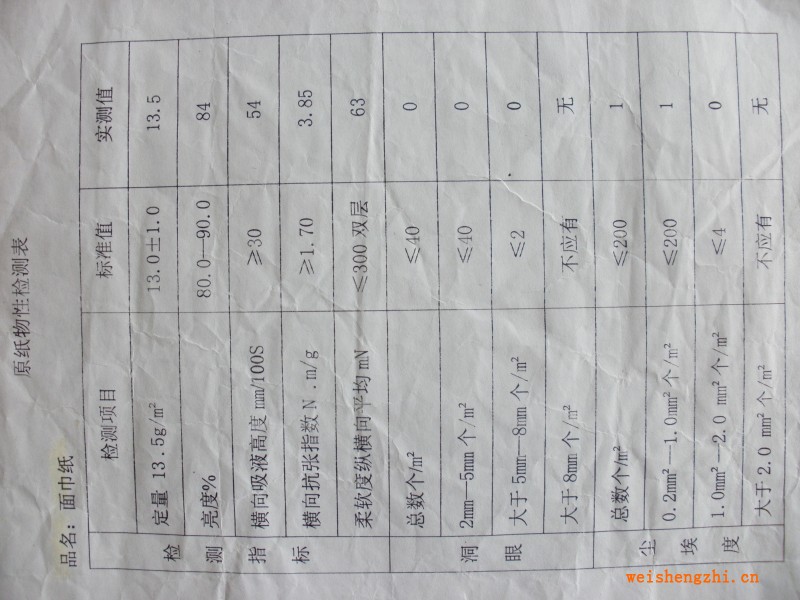 原纸物性检测表
品名：面巾纸
检测项目 标准值 实测值
检测指标
定量 13.5g/㎡ 13.0±1.0 13.5
亮度% 80.0—90.0 84
横向吸液高度 mm/100S ≥30 54
横向抗张指数 N.m/g ≥1.70 3.85
柔软度纵横向平均 mN ≤300 双层 63
洞眼
总数个/㎡ ≤40 0
2mm—5mm 个/㎡ ≤40 0
大于 5mm—8mm 个/㎡ ≤2 0
大于 8mm 个/㎡ 不应有 无
尘埃度
总数个/㎡ ≤200 1
0.2mm²—1.0mm² 个/㎡ ≤200 1
1.0mm²—2.0 mm² 个/㎡ ≤4 0
大于 2.0 mm² 个/㎡ 不应有 无
weishengzhi.cn